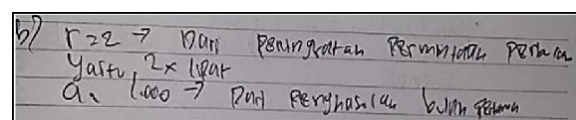 b) r=2 → Dari Peningkatan Permintaan
Yaitu 2x lipat
a. 1.000 → Dari Penghasilan bulan Pertama